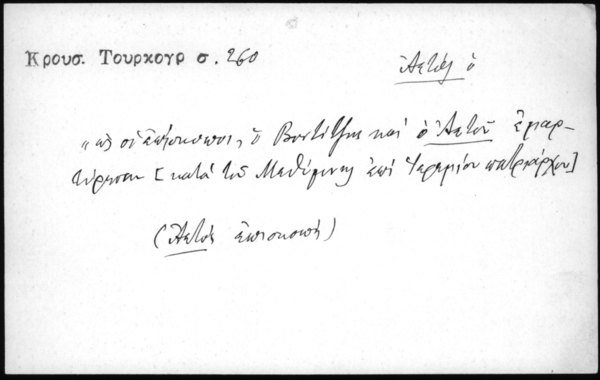 Κρουσ. Τουρκογρ σ. 260
Ἀετός ὁ
"ὡς οἱ ἐπίσκοποι, ὁ Βοντίτζης καί ὁ Ἀετοῦ ἐμαρ-
τύρησαν [κατά τοῦ Μεθύμνης ἐπί Ἱερεμίου πατριάρχου]
(Ἀετός ἐπισκοπή)